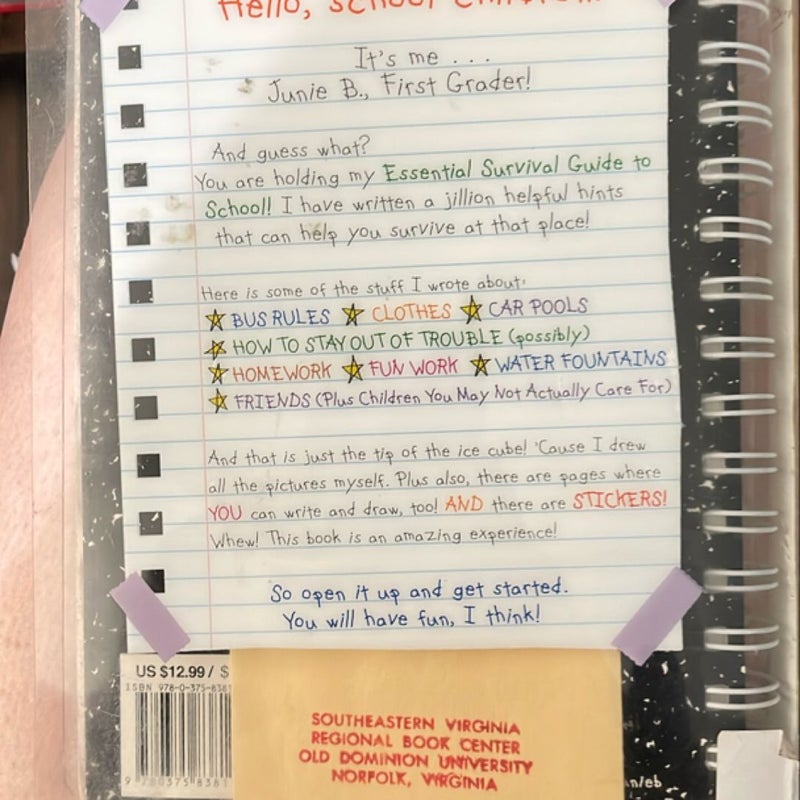 Hello, school children!
It's me . . .
Junie B., First Grader!
And guess what?
You are holding my Essential Survival Guide to
School! I have written a jillion helpful hints
that can help you survive at that place!
Here is some of the stuff I wrote about:
BUS RULES CLOTHES CAR POOLS
HOW TO STAY OUT OF TROUBLE (possibly)
HOMEWORK FUN WORK WATER FOUNTAINS
FRIENDS (Plus Children You May Not Actually Care For)
And that is just the tip of the ice cube! 'Cause I drew
all the pictures myself. Plus also, there are pages where
YOU can write and draw, too! AND there are STICKERS!
Whew! This book is an amazing experience!
So open it up and get started.
You will have fun, I think!
US $12.99 / $
ISBN 978-0-375-838
9 780375 8381
SOUTHEASTERN VIRGINIA
REGIONAL BOOK CENTER
OLD DOMINION UNIVERSITY
NORFOLK, VIRGINIA
n/eb